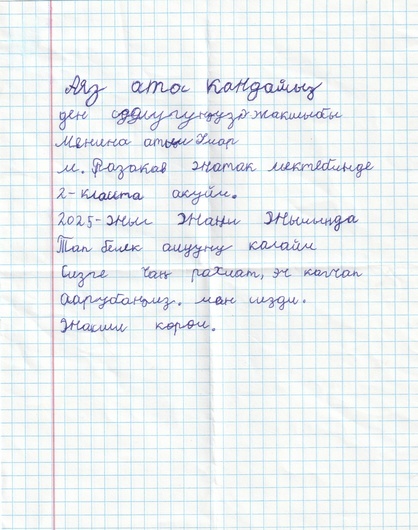 Аяз ата кандайсыз
ден соолугуңуз жакшыбы
Менин атым Умар
И. Раззаков жатак мектебинде
2-класста окуйм.
2025-жыл Жаңы жылында
Тап белек алууну каалайм
Сизге чоң рахмат, эч качан
аарубаңыз. мен сизди.
Жакшы көрөм.